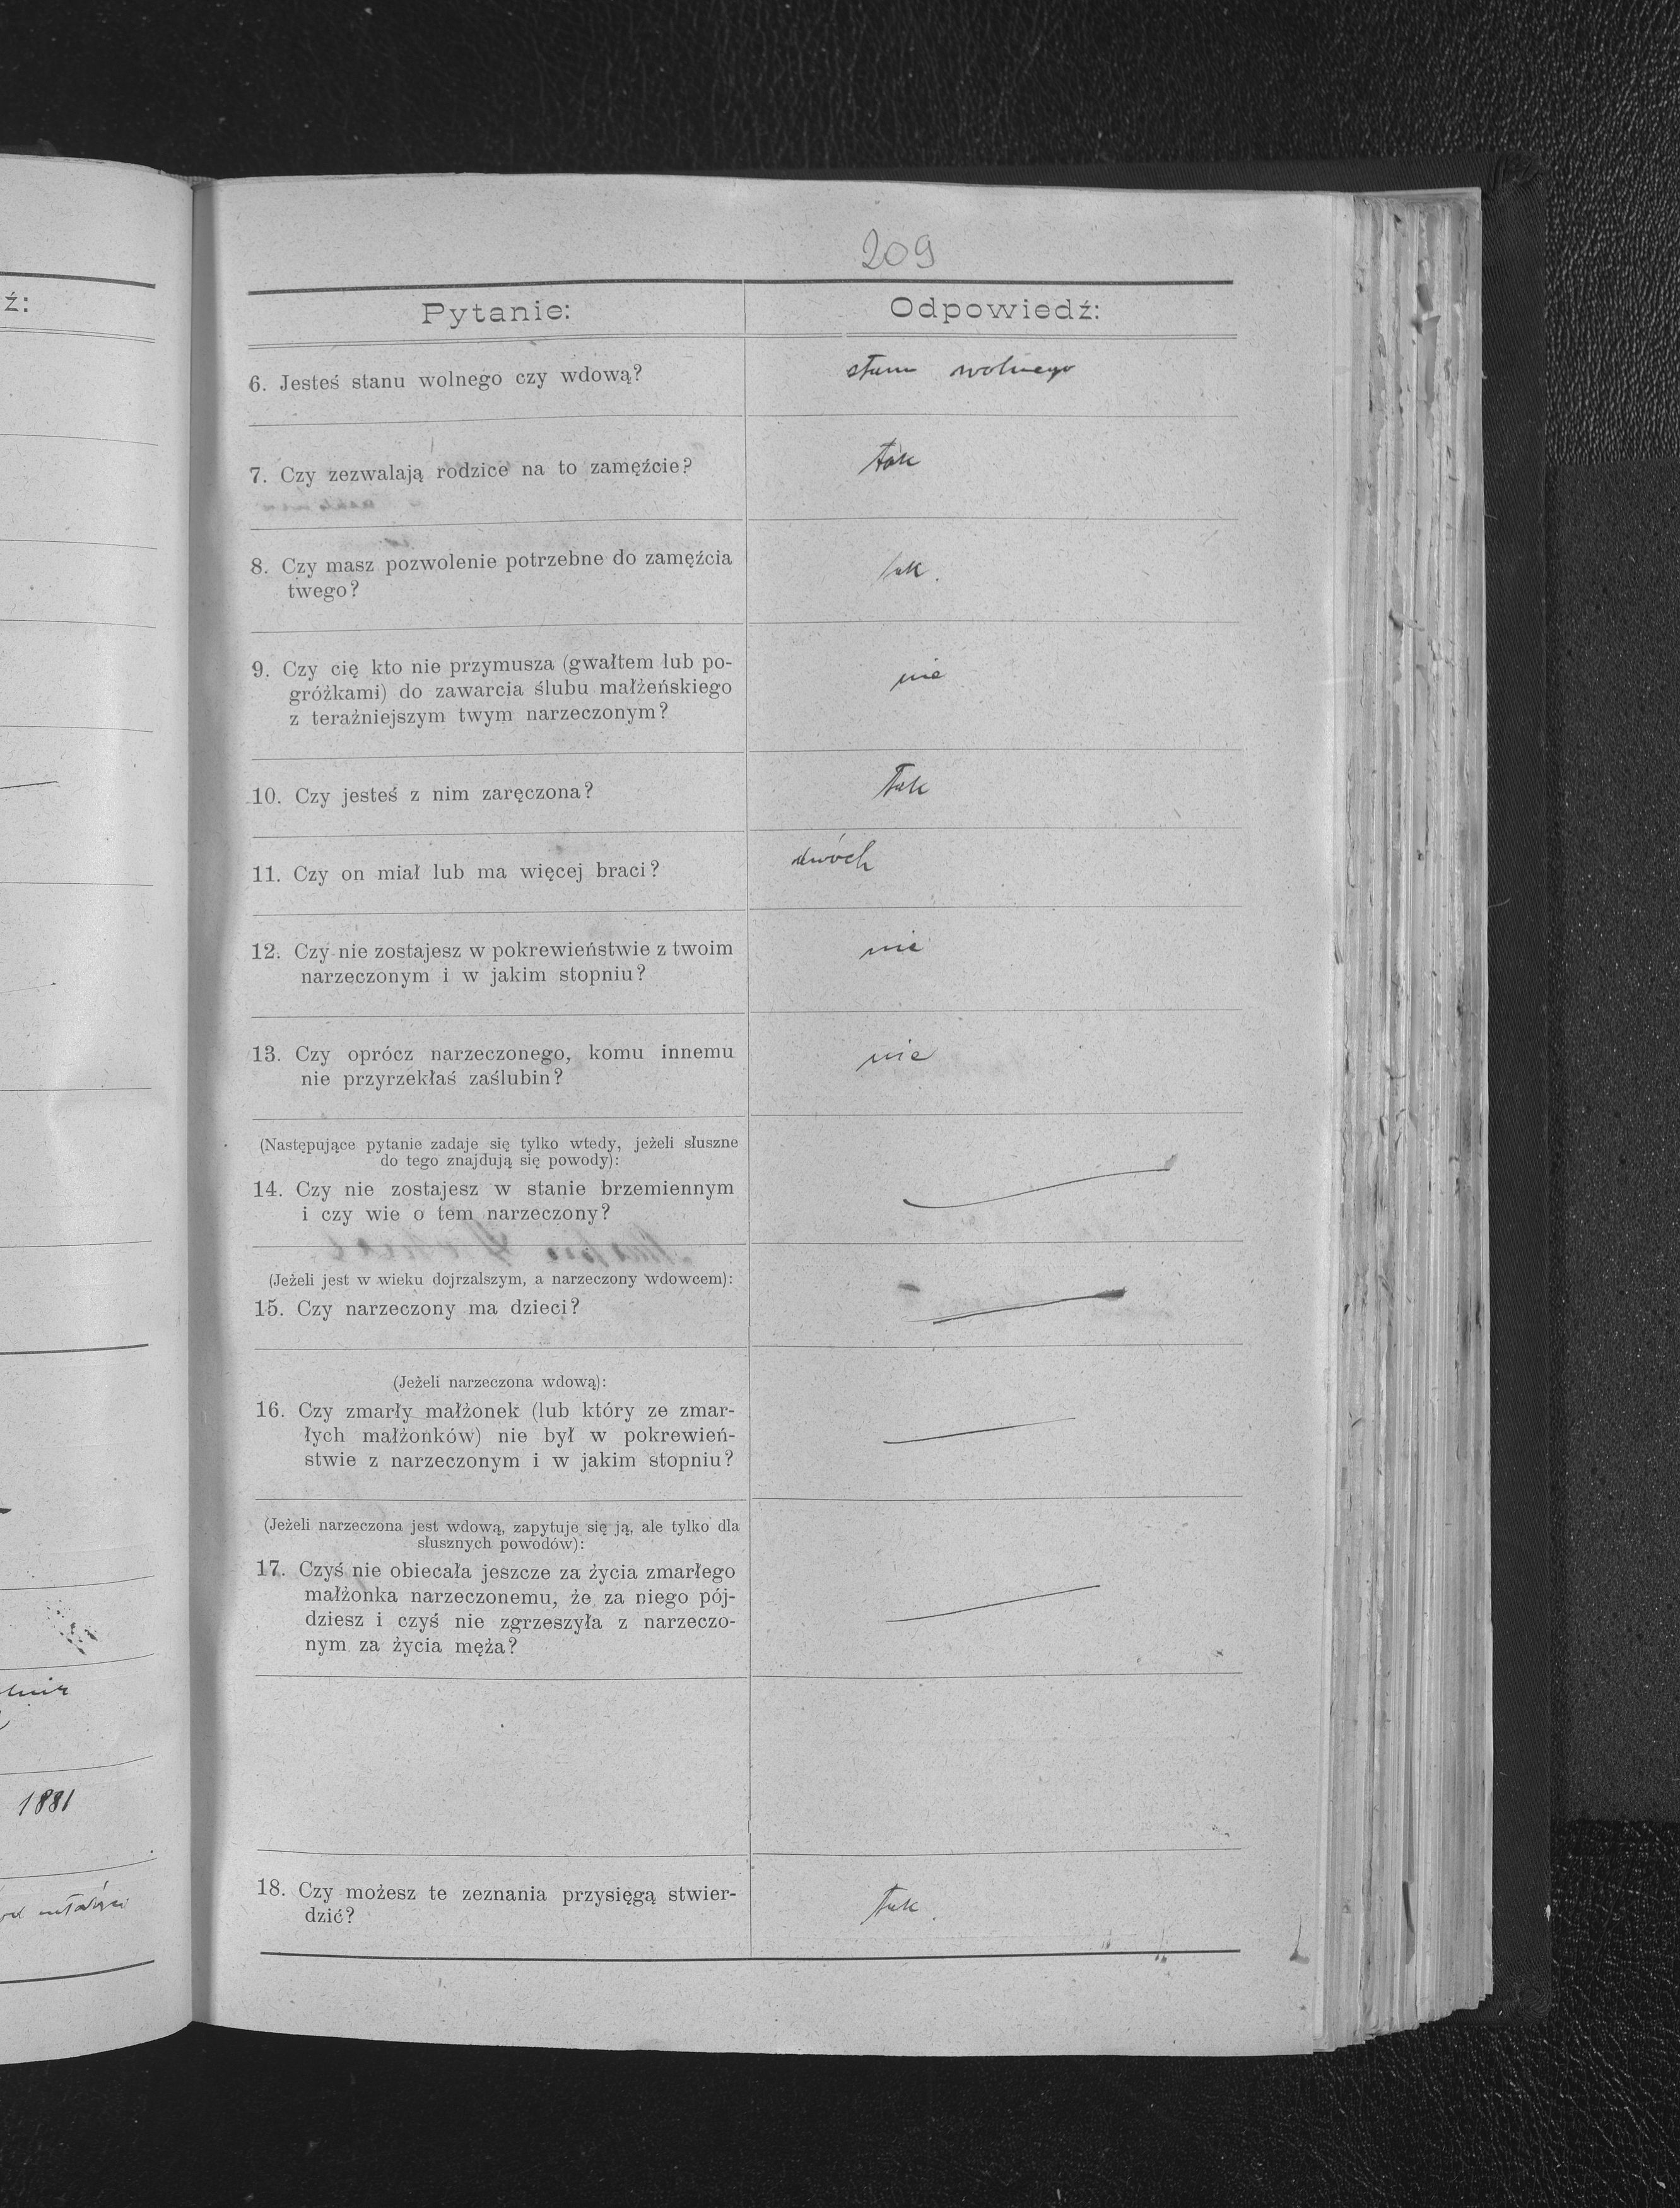 ź:
1881
209
Pytanie: Odpowiedź:
6. Jesteś stanu wolnego czy wdową? stanu wolnego
7. Czy zezwalają rodzice na to zamęźcie? tak
8. Czy masz pozwolenie potrzebne do zamęźcia tak.
twego?
9. Czy cię kto nie przymusza (gwałtem lub po- nie
gróżkami) do zawarcia ślubu małżeńskiego
z teraźniejszym twym narzeczonym?
10. Czy jesteś z nim zaręczona? Tak
11. Czy on miał lub ma więcej braci? dwóch
12. Czy nie zostajesz w pokrewieństwie z twoim nie
narzeczonym i w jakim stopniu?
13. Czy oprócz narzeczonego, komu innemu nie
nie przyrzekłaś zaślubin?
(Następujące pytanie zadaje się tylko wtedy, jeżeli słuszne
do tego znajdują się powody):
14. Czy nie zostajesz w stanie brzemiennym
i czy wie o tem narzeczony?
(Jeżeli jest w wieku dojrzalszym, a narzeczony wdowcem):
15. Czy narzeczony ma dzieci?
(Jeżeli narzeczona wdową):
16. Czy zmarły małżonek (lub który ze zmar-
łych małżonków) nie był w pokrewień-
stwie z narzeczonym i w jakim stopniu?
(Jeżeli narzeczona jest wdową, zapytuje się ją, ale tylko dla
słusznych powodów):
17. Czyś nie obiecała jeszcze za życia zmarłego
małżonka narzeczonemu, że za niego pój-
dziesz i czyś nie zgrzeszyła z narzeczo-
nym za życia męża?
18. Czy możesz te zeznania przysięgą stwier- tak.
dzić?